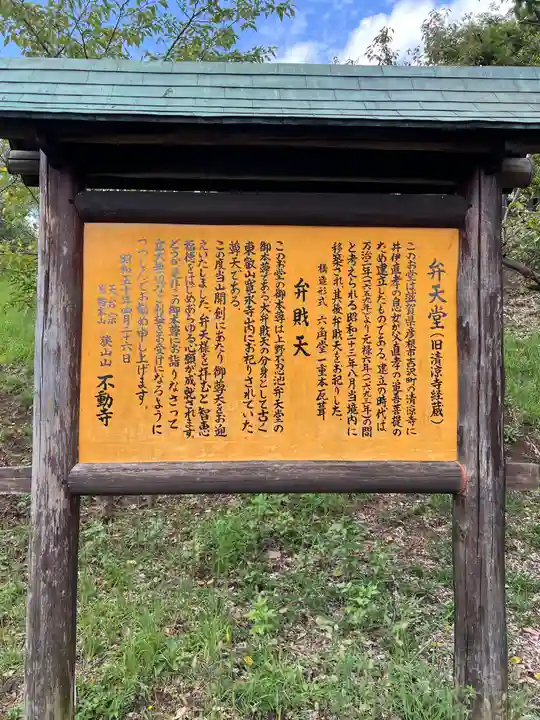 弁天堂（旧清涼寺経蔵）
このお堂は滋賀県彦根市古沢町の清涼寺に
井伊直孝の息女が父直孝の追善菩提の
ため建立したものである。建立の時代は
万治二年（一六五九年）より元禄六年（一六九三年）の間
と考えられる。昭和二十三年八月当境内に
移築され、其後弁財天をお祀りした。
構造形式 六角堂一重本瓦葺
弁財天
このお堂の御本尊は上野不忍池弁天堂の
御本尊である大弁財天の分身として古く
東叡山寛永寺山内にお祀りされていた
尊天である。
この度当山開創にあたり御尊天をお迎
えいたしました。弁天様を拝むと智恵
福徳をはじめあらゆる心願が成就されます。
どうか是非この御本尊にお詣りなさって
立天様の御ご利益をお受けになるように
つつしんでお勧め申し上げます。
昭和五十年四月二十六日
天台宗
狭山山 不動寺